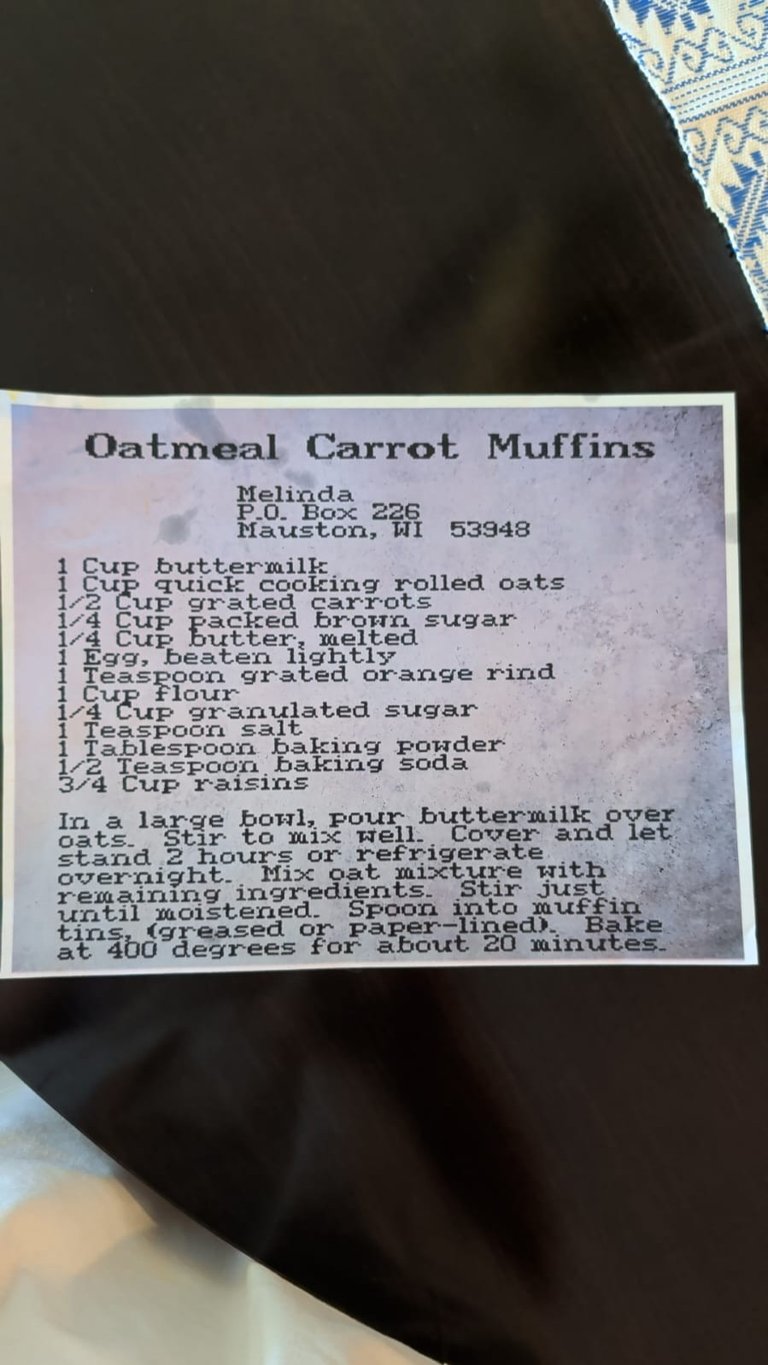 Oatmeal Carrot Muffins
Melinda
P.O. Box 226
Mauston, WI 53948
1 Cup buttermilk
1 Cup quick cooking rolled oats
1/2 Cup grated carrots
1/4 Cup packed brown sugar
1/4 Cup butter, melted
1 Egg, beaten lightly
1 Teaspoon grated orange rind
1 Cup flour
1/4 Cup granulated sugar
1 Teaspoon salt
1 Tablespoon baking powder
1/2 Teaspoon baking soda
3/4 Cup raisins
In a large bowl, pour buttermilk over
oats. Stir to mix well. Cover and let
stand 2 hours or refrigerate
overnight. Mix oat mixture with
remaining ingredients. Stir just
until moistened. Spoon into muffin
tins, (greased or paper-lined). Bake
at 400 degrees for about 20 minutes.